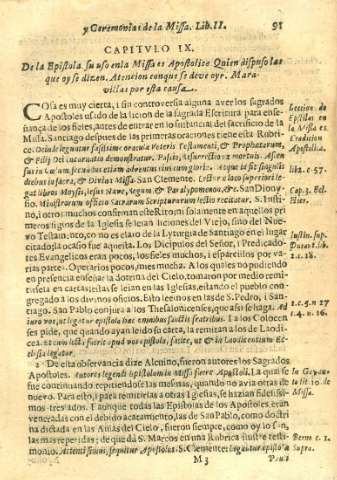 y Ceremonias de la Missa. Lib. II. 91
CAPITVLO IX.
De la Epistola. su uso en la Missa es Apostolico Quien dispuso las
que oy se dizen. Atencion con que se deve oyr. Mara-
villas por esta causa.
COsa es muy cierta, i sin controversia alguna aver los sagrados
Apostoles usado de la licion de la sagrada Escritura para ense-
ñança de los fieles, antes de entrar en lo sustancial del sacrificio de la
Missa. Santiago despues de las primeras oraciones tiene esta Rubri-
ca. Deinde leguntur oracula Veteris Testamenti, & Prophetarum,
& Filij Dei demonstratur. Passio, Resurrectio a mortuis.
& Divina Missa. San Clemente.
legat libros Moysis, Iesu Nave, Regum, & Paralypomenon, &c. San Diony-
sio. Ministrorum officio Sacrarum Scripturarum lectio recitatur. S. Iusti-
no, i otros muchos confirman este Rito, i no solamente en aquellos pri-
meros siglos de la Iglesia se leian liciones del Viejo, sino del Nue-
vo Testamento, como es claro de la Lyturgia de Santiago en el lugar
citado, la ocasion fue aquesta. Los Dicipulos del Señor, i Predicado-
res Evangelicos eran pocos, los fieles muchos, i esparcidos por va-
rias partes. Operarios pocos, mies mucha. A los quales no pudiendo
en presencia enseñar la dotrina del Cielo, tomaron por medio remi-
tirles epistolas, las quales se leian en las Iglesias, estando el pueblo con-
gregado a los divinos oficios. Esto leemos en las de S. Pedro, i San-
tiago. San Pablo conjura a los Thesalonicenses, que assi se haga. Ad
iuro vos, ut legatur epistola haec omnibus sanctis fratribus. I a los Colocen-
ses pide, que quando ayan leido su carta, la remitan a los de Laodi-
cea. Et cum lecta fuerit apud vos epistola, facite, ut & in Laodicensium Ec-
clesia legatur.
2 De esta observancia dize Alcuino, fueron autores los Sagrados
Apostoles. Autores legendi Epistolam in Missa fuere Apostoli. La qual se
fue continuando repitiendose las mesmas, quando no avia otras de
nuevo. Para esto, i para remitirlas a otras Iglesias, se hazian fidelissi-
mos treslados. I aunque todas las Epistolas de los Apostoles eran
veneradas con el debido acatamiento, las de San Pablo, como dotri-
na dictada en las Aulas del Cielo, fueron siempre, como oy lo son,
las mas repetidas; de que da S. Marcos en una Rubrica ilustre testi-
monio. S. Clemente: legantur epistolæ
M 3 Pau-
Leccion de
Epistolas en
la Missa es
Tradicion
Apostolica.
lib. 2. c. 57.
Cap. 3. Ecl.
Hier.
Iustin. sup.
2. c. 18.
1. c. 5. n 27
1. 4. n. 16.
Missa.
Supra.